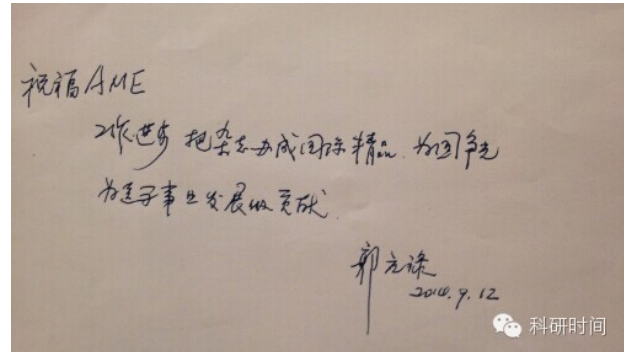 祝福AME
工作进步 把杂志办成国际精品.为国争光
为医学事业发展做贡献.
郭应禄
2014.9.12
科研时间